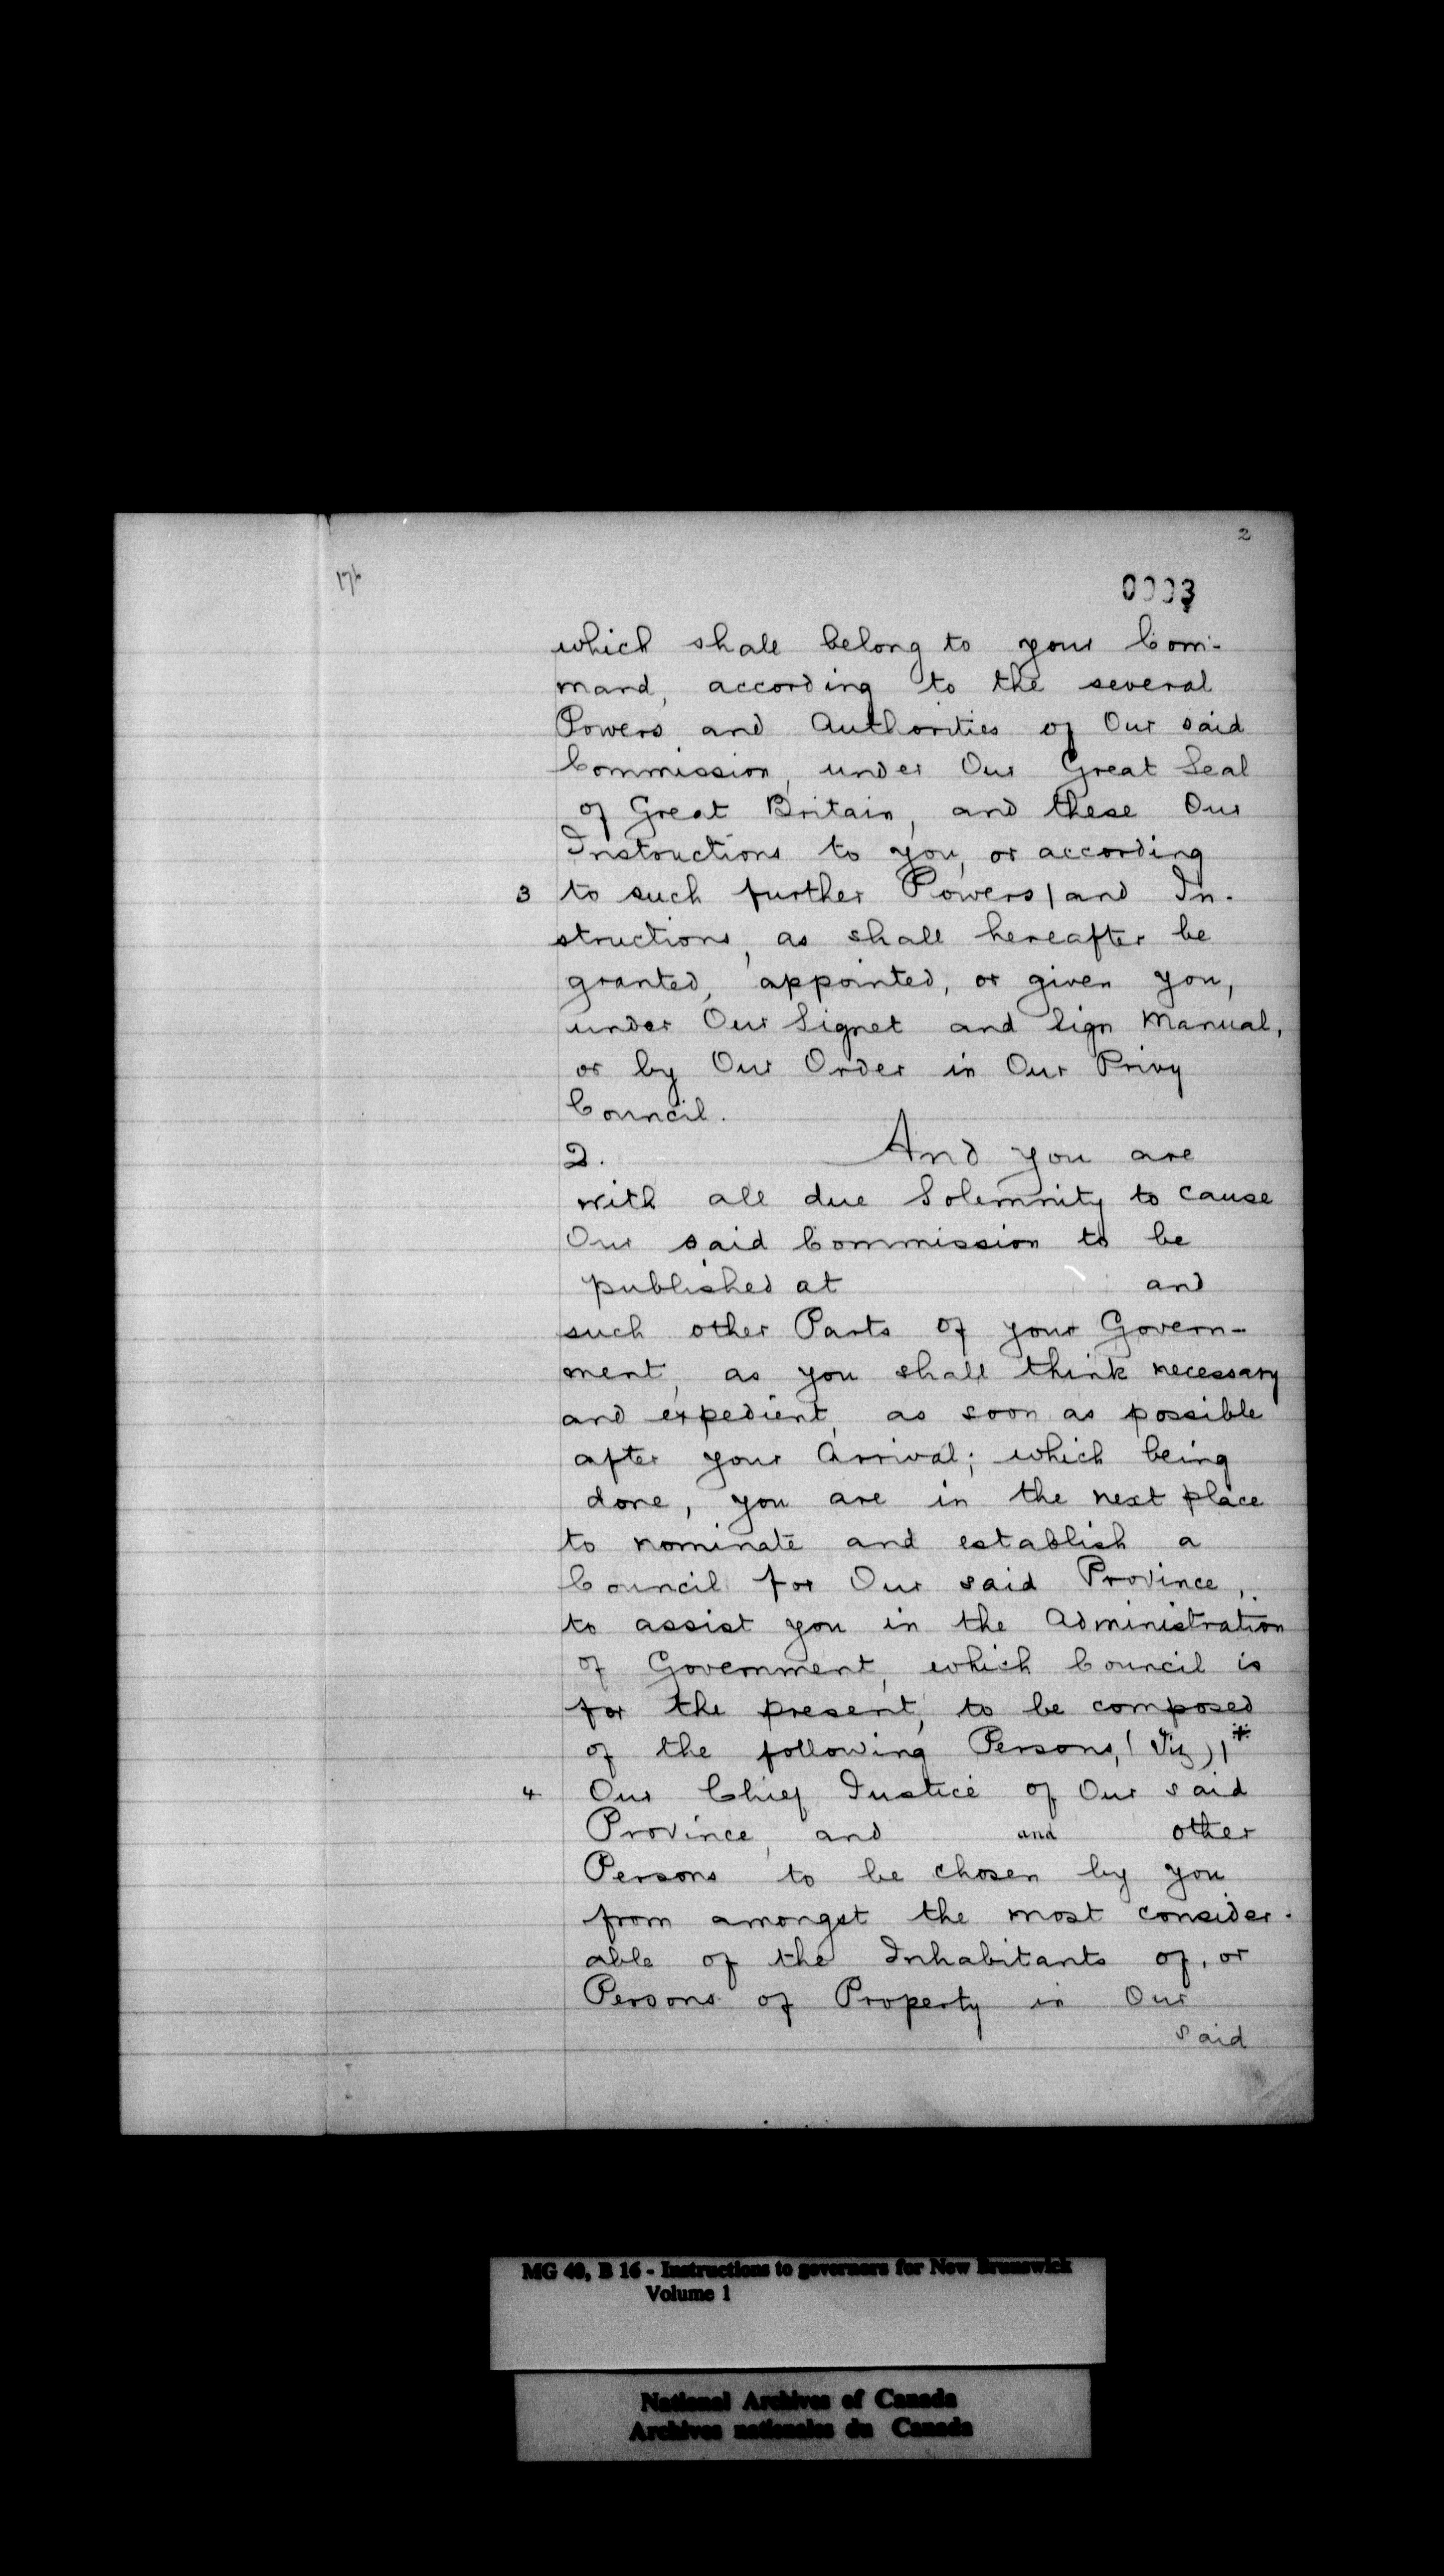 2
176
0003
which shall belong to your Com-
mand, according to the several
Powers and Authorities of Our said
Commission, under Our Great Seal
of Great Britain, and these Our
Instructions to you, or according
3 to such further Powers | and In-
structions, as shall hereafter be
granted, appointed, or given you,
under Our Signet and Sign Manual,
or by Our Order in Our Privy
Council.
2. And you are
with all due Solemnity to cause
Our said Commission to be
published at and
such other Parts of your Govern-
ment, as you shall think necessary
and expedient, as soon as possible
after your Arrival; which being
done, you are in the next place
to nominate and establish a
Council for Our said Province,
to assist you in the Administration
of Government, which Council is
for the present, to be composed
of the following Persons, (Viz) | *
4 Our Chief Justice of Our said
Province, and and other
Persons to be chosen by you
from amongst the most consider-
able of the Inhabitants of, or
Persons of Property in Our
said
MG 40, B 16 - Instructions to governors for New Brunswick
Volume 1
National Archives of Canada
Archives nationales du Canada